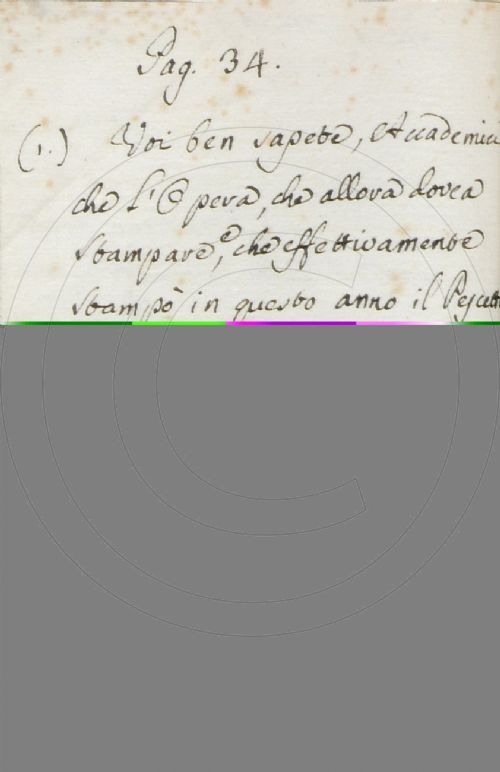 Pag. 34.
(1.) Voi ben sapete, Accademici
che l'Opera, che allora dovea
stampare, e che effettivamente
stampò in questo anno il Pescetti